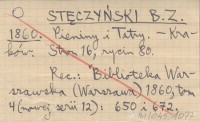 STĘCZYŃSKI B. Z.
1860. Pieniny i Tatry. – Kra-
ków. Stron 16, rycin 80.
Rec.: "Biblioteka War-
szawska (Warszawa) 1860, tom
4 (nowej serii 12): 650 i 672.